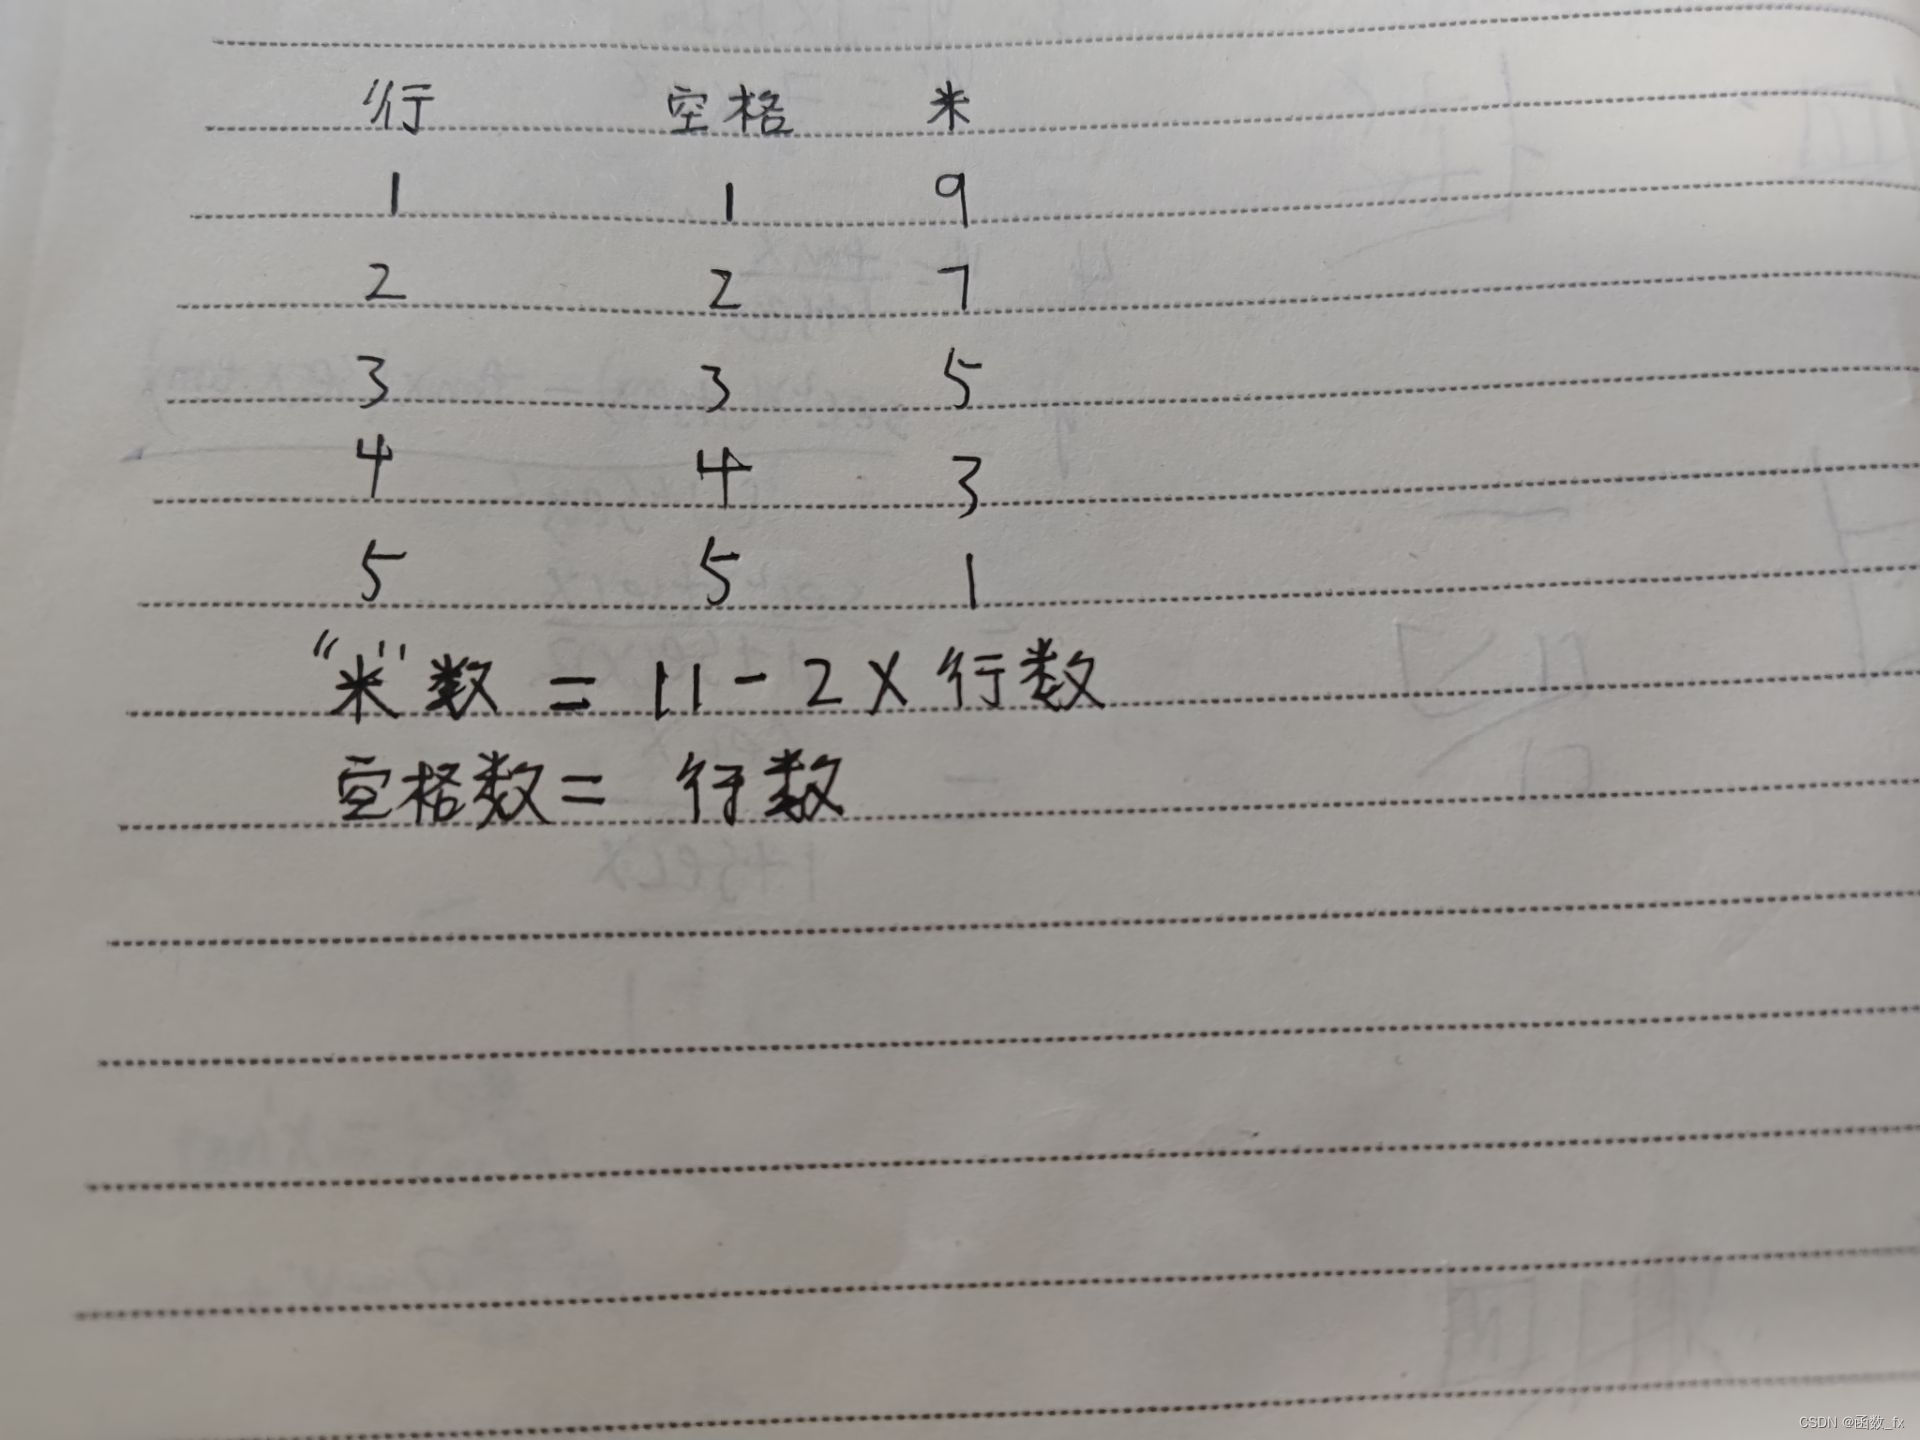 行 空格 米
1 1 9
2 2 7
3 3 5
4 4 3
5 5 1
“米”数 = 11 - 2 X 行数
空格数 = 行数
CSDN @函数_fx